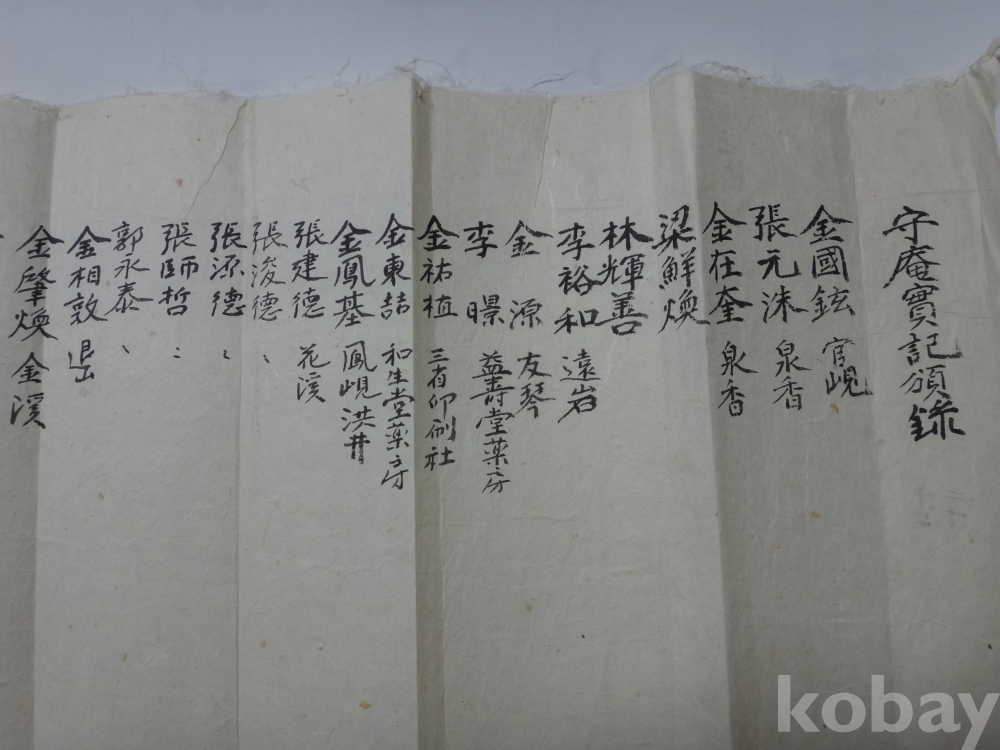 守庵實記頒錄
金國鉉 官峴
張元洙 泉香
金在奎 泉香
梁鮮煥
林輝善
李裕和 遠岩
金源 友琴
李暻 益壽堂薬房
金祐植 三省印刷社
金東喆 和生堂薬房
金鳳基 鳳峴洪井
張建德 花溪
張浚德 〻
張源德 〻
張師哲 〻
郭永泰 〻
金相敦 退
金肇煥 金溪
kobay